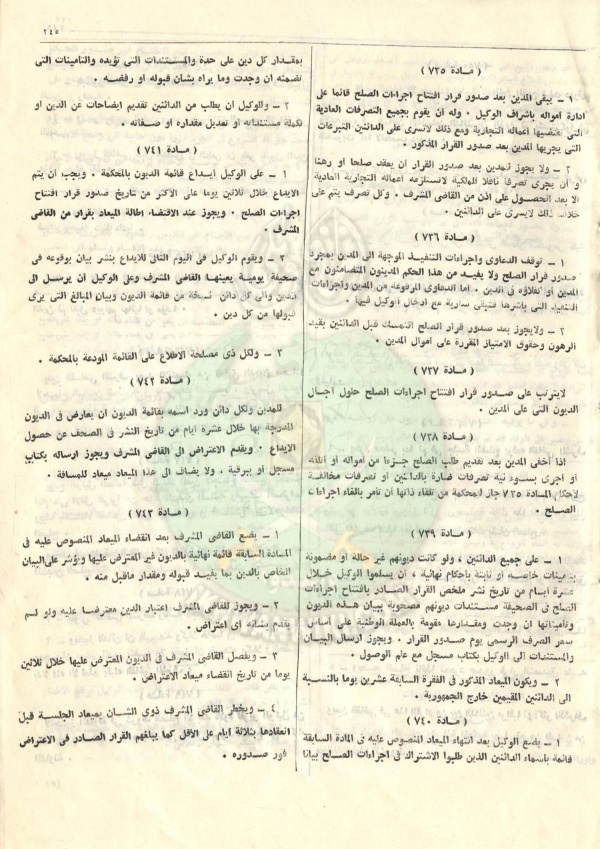 ٢٤٥
( مادة ٧٣٥ )
١ ـ يبقى المدين بعد صدور قرار افتتاح اجراءات الصلح قائما على
ادارة أمواله باشراف الوكيل . وله أن يقوم بجميع التصرفات العادية
التى تقتضيها أعماله التجارية ومع ذلك لاتسرى على الدائنين التبرعات
التى يجريها المدين بعد صدور القرار المذكور .
٢ ـ ولا يجوز للمدين بعد صدور القرار أن يعقد صلحا أو رهنا
و أن يجرى تصرفا ناقلا للملكية لاتستلزمه أعماله التجارية العادية
الا بعد الحصول على اذن من القاضى المشرف . وكل تصرف يتم على
خلاف ذلك لايسرى على الدائنين .
( مادة ٧٣٦ )
١ ـ توقف الدعاوى واجراءات التنفيذ الموجهة الى المدين بمجرد
صدور قرار الصلح ولا يفيد من هذا الحكم المدينون المتضامنون مع
المدين أو كفلاؤه فى الدين . أما الدعاوى المرفوعة من المدين واجراءات
التنفيذ التى باشرها فتبقى سارية مع ادخال الوكيل فيها .
٢ ـ ولايجوز بعد صدور قرار الصلح التمسك قبل الدائنين بقيد
الرهون وحقوق الامتياز المقررة على أموال المدين .
( مادة ٧٣٧ )
لايترتب على صدور قرار افتتاح اجراءات الصلح حلول آجال
الديون التى على المدين .
( مادة ٧٣٨ )
اذا أخفى المدين بعد تقديم طلب الصلح جزءا من أمواله أو أتلفه
أو أجرى بسوء نية تصرفات ضارة بالدائنين أو تصرفات مخالفة
لأحكام المادة ٧٣٥ جاز للمحكمة من تلقاء ذاتها أن تأمر بالغاء اجراءات
الصلح .
( مادة ٧٣٩ )
١ ـ على جميع الدائنين ، ولو كانت ديونهم غير حالة أو مضمونة
بتأمينات خاصة أو ثابتة بأحكام نهائية ، أن يسلموا الوكيل خلال
عشرة أيام من تاريخ نشر ملخص القرار الصادر بافتتاح اجراءات
الصلح فى الصحيفة مستندات ديونهم مصحوبة ببيان هذه الديون
وتأميناتها ان وجدت ومقدارها مقومة بالعملة الوطنية على أساس
سعر الصرف الرسمى يوم صدور القرار . ويجوز ارسال البيان
والمستندات الى الوكيل بكتاب مسجل مع علم الوصول .
٢ ـ ويكون الميعاد المذكور فى الفقرة السابعة عشرين يوما بالنسبة
الى الدائنين المقيمين خارج الجمهورية .
( مادة ٧٤٠ )
١ ـ يضع الوكيل بعد انتهاء الميعاد المنصوص عليه فى المادة السابقة
قائمة بأسماء الدائنين الذين طلبوا الاشتراك فى اجراءات الصلح بيانا
بمقدار كل دين على حدة والمستندات التى تؤيده والتأمينات التى
تضمنه ان وجدت وما يراه بشان قبوله أو رفضه .
٢ ـ وللوكيل أن يطلب من الدائنين تقديم ايضاحات عن الدين أو
تكملة مستنداته أو تعديل مقداره أو صفاته .
( مادة ٧٤١ )
١ ـ على الوكيل ايداع قائمة الديون بالمحكمة . ويجب أن يتم
الايداع خلال ثلاثين يوما على الأكثر من تاريخ صدور قرار افتتاح
اجراءات الصلح . ويجوز عند الاقتضاء اطالة الميعاد بقرار من القاضى
المشرف .
٢ ـ ويقوم الوكيل فى اليوم التالى للايداع بنشر بيان بوقوعه فى
صحيفة يومية يعينها القاضى المشرف وعلى الوكيل أن يرسل الى
المدين والى كل دائن نسخة من قائمة الديون وبيان المبالغ التى يرى
قبولها من كل دين .
٣ ـ ولكل ذى مصلحة الاطلاع على القائمة المودعة بالمحكمة .
( مادة ٧٤٢ )
للمدين ولكل دائن ورد اسمه بقائمة الديون أن يعارض فى الديون
المدرجة بها خلال عشرة أيام من تاريخ النشر فى الصحف عن حصول
الايداع . ويقدم الاعتراض الى القاضى المشرف ويجوز ارساله بكتاب
مسجل أو ببرقية ، ولا يضاف الى هذا الميعاد ميعاد للمسافة .
( مادة ٧٤٣ )
١ ـ يضع القاضى المشرف بعد انقضاء الميعاد المنصوص عليه فى
المادة السابقة قائمة نهائية بالديون غير المعترض عليها ويؤشر على البيان
الخاص بالدين بما يفيد قبوله ومقدار ماقبل منه .
٢ ـ ويجوز للقاضى المشرف اعتبار الدين معترضا عليه ولو لم
يقدم بشأنه أى اعتراض .
٣ ـ ويفصل القاضى المشرف فى الديون المعترض عليها خلال ثلاثين
يوما من تاريخ انقضاء ميعاد الاعتراض .
٤ ـ ويخطر القاضى المشرف ذوى الشان بميعاد الجلسة قبل
انعقادها بثلاثة أيام على الأقل كما يبلغهم القرار الصادر فى الاعتراض
فور صدوره .